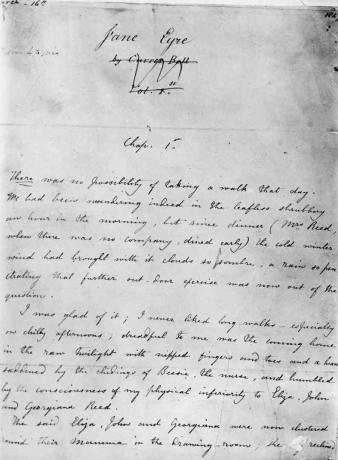 16th
Jane Eyre
by Currer Bell
Vol. I.
Chap. 1.
There was no possibility of taking a walk that day.
We had been wandering indeed in the leafless shrubbery
an hour in the morning, but since dinner (Mrs Reed,
when there was no company, dined early) the cold winter
wind had brought with it clouds so sombre, a rain so pen
etrating that further out-door exercise was now out of the
question.
I was glad of it; I never liked long walks - especially
on chilly afternoons; dreadful to me was the coming home
in the raw twilight with nipped fingers and toes and a hear
saddened by the chidings of Bessie, the nurse, and humbled
by the consciousness of my physical inferiority to Eliza, John
and Georgiana Reed.
The said Eliza, John and Georgiana were now clustered
round their Mamma in the drawing-room; she reclined